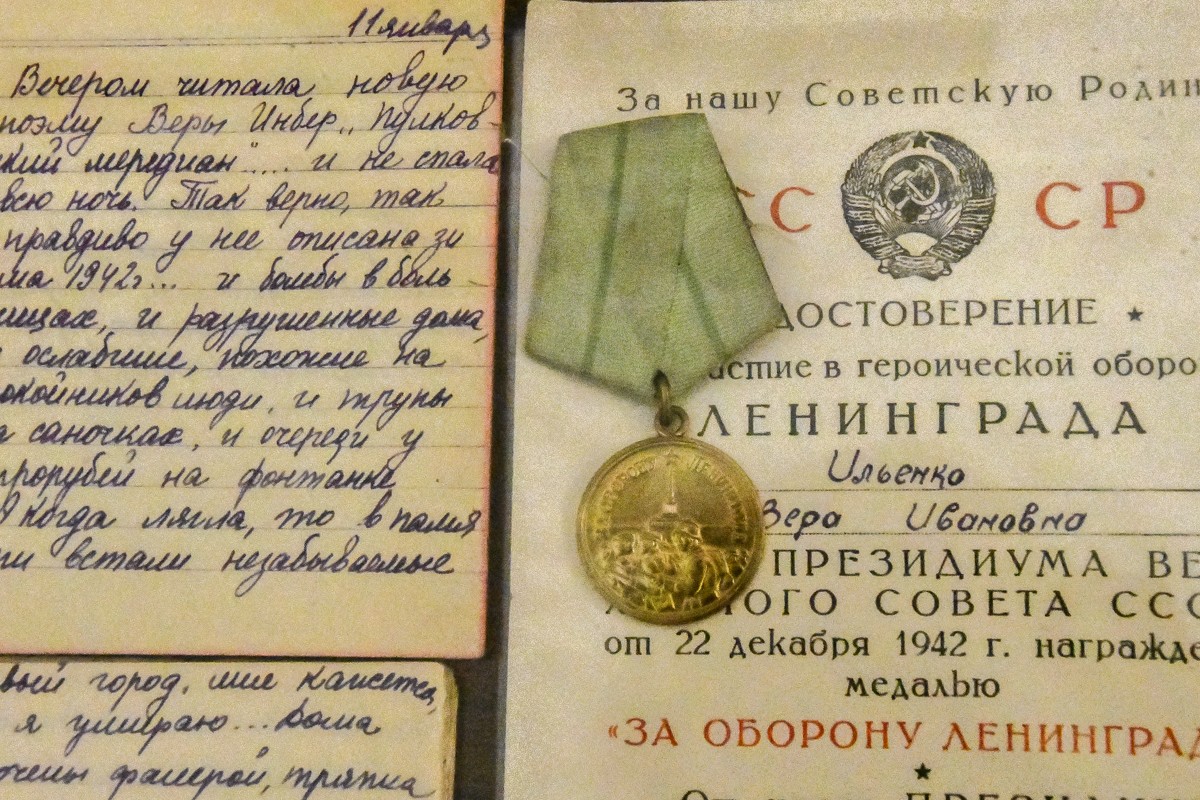 11 января
Вечером читала новую
поэму Веры Инбер „Пулков-
ский меридиан"..... и не спала
всю ночь. Так верно, так
правдиво у нее описана зи
ма 1942г... и бомбы в боль-
ницах, и разрушенные дома,
и ослабшие, похожие на
покойников люди, и трупы
на саночках, и очереди у
прорубей на фонтанке.
Я когда легла, то в памя
ти встали незабываемые
вый город. мне кажется,
я умираю... дома
очены фанерой, тряпка
За нашу Советскую Родин
СС СР
ДОСТОВЕРЕНИЕ ★
астие в героической оборо
ЛЕНИНГРАДА
Ильенко
Вера Ивановна
ПРЕЗИДИУМА ВЕ
НОГО СОВЕТА ССС
от 22 декабря 1942 г. награжде
медалью
«ЗА ОБОРОНУ ЛЕНИНГРАД
★
ЗА ОБОРОНУ ЛЕНИНГРАДА